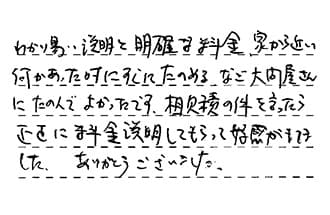 わかり易い説明と明確な料金 家から近い
何かあった時にすぐにたのめる など大内屋さん
にたのんで よかったです. 相見積の件を言ったら
正直に料金説明してもらって好感がもてま
した。 ありがとうございました。